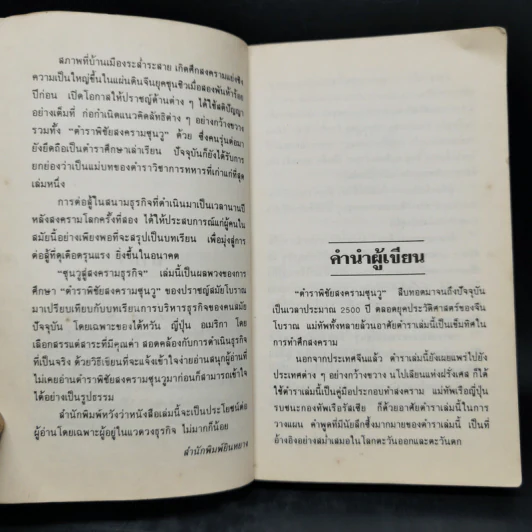 สภาพที่บ้านเมืองระส่ำระสาย เกิดศึกสงครามแย่งชิง
ความเป็นใหญ่ขึ้นในแผ่นดินจีนยุคชุนชิวเมื่อสองพันห้าร้อย
ปีก่อน เปิดโอกาสให้ปราชญ์ด้านต่าง ๆ ได้ใช้สติปัญญา
อย่างเต็มที่ ก่อกำเนิดแนวคิดลัทธิต่าง ๆ อย่างกว้างขวาง
รวมทั้ง “ตำราพิชัยสงครามซุนวู” ด้วย ซึ่งคนรุ่นต่อมา
ยังยึดถือเป็นตำราศึกษาเล่าเรียน ปัจจุบันก็ยังได้รับการ
ยกย่องว่าเป็นแม่บทของตำราวิชาการทหารที่เก่าแก่ที่สุด
เล่มหนึ่ง
การต่อสู้ในสนามธุรกิจที่ดำเนินมาเป็นเวลานานปี
หลังสงครามโลกครั้งที่สอง ได้ให้ประสบการณ์แก่ผู้คนใน
สมัยนี้อย่างเพียงพอที่จะสรุปเป็นบทเรียน เพื่อมุ่งสู่การ
ต่อสู้ที่ดุเดือดรุนแรง ยิ่งขึ้นในอนาคต
“ซุนวูสู่สงครามธุรกิจ” เล่มนี้เป็นผลพวงของการ
ศึกษา “ตำราพิชัยสงครามซุนวู” ของปราชญ์สมัยโบราณ
มาเปรียบเทียบกับบทเรียนการบริหารธุรกิจของคนสมัย
ปัจจุบัน โดยเฉพาะของไต้หวัน ญี่ปุ่น อเมริกา โดย
เลือกสรรแต่สาระที่มีคุณค่า สอดคล้องกับการดำเนินธุรกิจ
ที่เป็นจริง ด้วยวิธีเขียนที่จะแจ้งเข้าใจง่ายอ่านสนุกผู้อ่านที่
ไม่เคยอ่านตำราพิชัยสงครามซุนวูมาก่อนก็สามารถเข้าใจ
ได้อย่างเป็นรูปธรรม
สำนักพิมพ์หวังว่าหนังสือเล่มนี้จะเป็นประโยชน์ต่อ
ผู้อ่านโดยเฉพาะผู้อยู่ในแวดวงธุรกิจ ไม่มากก็น้อย
สำนักพิมพ์อินทยาง
คำนำผู้เขียน
“ตำราพิชัยสงครามซุนวู” สืบทอดมาจนถึงปัจจุบัน
เป็นเวลาประมาณ 2500 ปี ตลอดยุคประวัติศาสตร์ของจีน
โบราณ แม่ทัพทั้งหลายล้วนอาศัยตำราเล่มนี้เป็นเข็มทิศใน
การทำศึกสงคราม
นอกจากประเทศจีนแล้ว ตำราเล่มนี้ยังเผยแพร่ไปยัง
ประเทศต่าง ๆ อย่างกว้างขวาง นโปเลียนแห่งฝรั่งเศส ก็ได้
ใช้ตำราเล่มนี้เป็นคู่มือประกอบทำสงคราม แม่ทัพเรือญี่ปุ่น
รบชนะกองทัพเรือรัสเซีย ก็ด้วยอาศัยตำราเล่มนี้ในการ
วางแผน คำพูดที่มีนัยลึกซึ้งมากมายของตำราเล่มนี้ เป็นที่
อ้างอิงอย่างสม่ำเสมอในโลกตะวันออกและตะวันตก